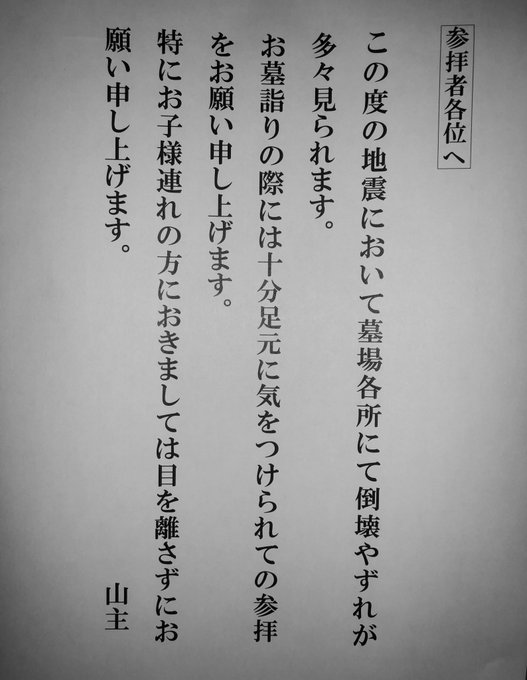 参拝者各位へ
この度の地震において墓場各所にて倒壊やずれが
多々見られます。
お墓詣りの際には十分足元に気をつけられての参拝
をお願い申し上げます。
特にお子様連れの方におきましては目を離さずにお
願い申し上げます。
山主